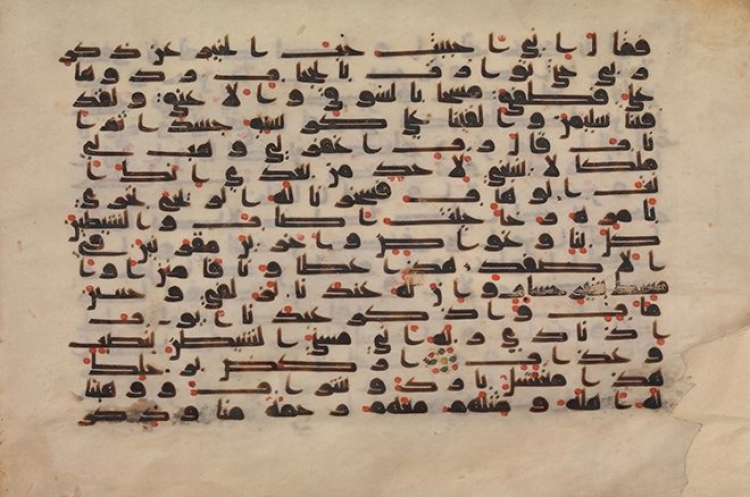 فقال اني احببت حب الخير عن ذكر
ربي حتى توارت بالحجاب ردوها
علي فطفق مسحا بالسوق والاعناق ولقد
فتنا سليمن والقينا على كرسيه جسدا ثم ا
ناب قال رب اغفر لي وهب لي
ملكا لا ينبغي لاحد من بعدي انك ا
نت الوهاب فسخرنا له الريح تجري
بامره رخا حيث اصاب والشيطين
كل بنا وغواص واخرين مقرنين في
الاصفد هذا عطاونا فامنن او ا
مسك بغير حساب وان له عندنا لزلفى وحسن
ماب واذكر عبدنا ايوب
اذ نادى ربه اني مسني الشيطن بنصب
وعذاب اركض برجلك
هذا مغتسل بارد وشراب ووهبنا
له اهله ومثلهم معهم رحمة منا وذكر